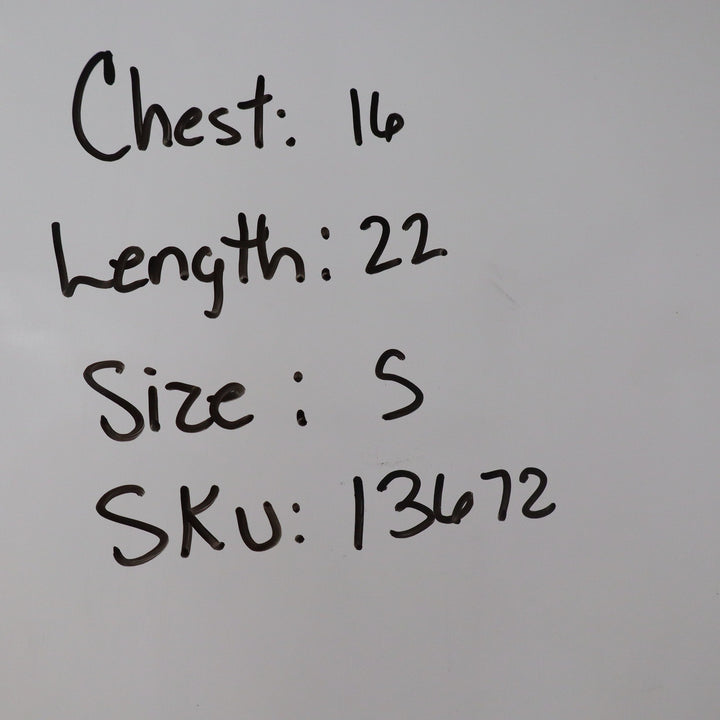 Chest: 16
Length: 22
Size: S
SKU: 13672